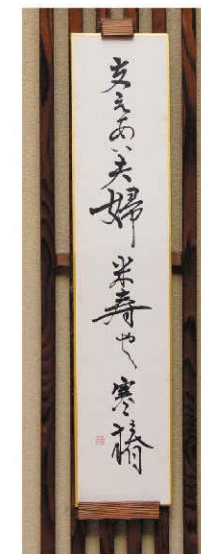 支えあい夫婦米寿や寒椿